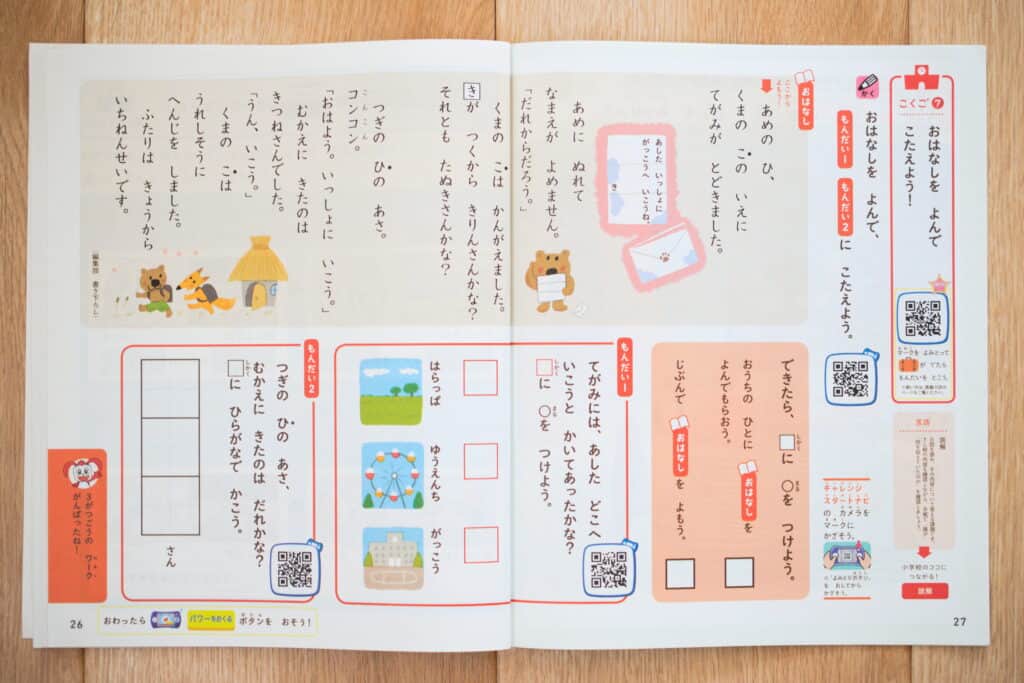 こくご
おはなしを よんで
こたえよう!
マークを よみとって
が でたら
もんだいを とこう。
かく
おはなしを よんで、
もんだい1 もんだい2 に こたえよう。
言語
読解
小学校のココに
つながる!
読解
チャレンジ
スタートナビ
の カメラを
マークに
かざそう。
おはなし
ここから
よもう!
あめの ひ、
くまの この いえに
てがみが とどきました。
あした いっしょに
がっこうへ いこうね。
き
あめに ぬれて
なまえが よめません。
「だれからだろう。」
くまの こは かんがえました。
きが つくから きりんさんかな?
それとも たぬきさんかな?
つぎの ひの あさ。
コンコン。
こんこん
「おはよう。いっしょに いこう。」
むかえに きたのは
きつねさんでした。
「うん、いこう。」
くまの こは
うれしそうに
へんじを しました。
ふたりは きょうから
いちねんせいです。
(編集部 書き下ろし)
できたら、□に ○を つけよう。
おうちの ひとに おはなしを
よんでもらおう。
じぶんで おはなしを よもう。
もんだい1
てがみには、あした どこへ
いこうと かいてあったかな?
□に ○を つけよう。
しかく
まる
はらっぱ
ゆうえんち
がっこう
もんだい2
つぎの ひの あさ、
むかえに きたのは だれかな?
□に ひらがなで かこう。
しかく
さん
3がつごうの ワーク
がんばったね!
おわったら パワーをおくる ボタンを おそう!
26
27